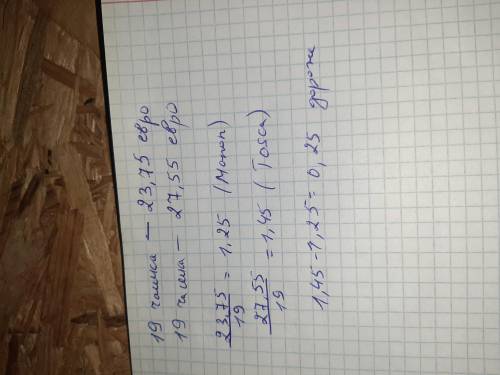 19 чашка — 23,75 евро
19 чашка — 27,55 евро
23,75/19 = 1,25 (Monon)
27,55/19 = 1,45 (Tosca)
1,45-1,25=0,25 дороже